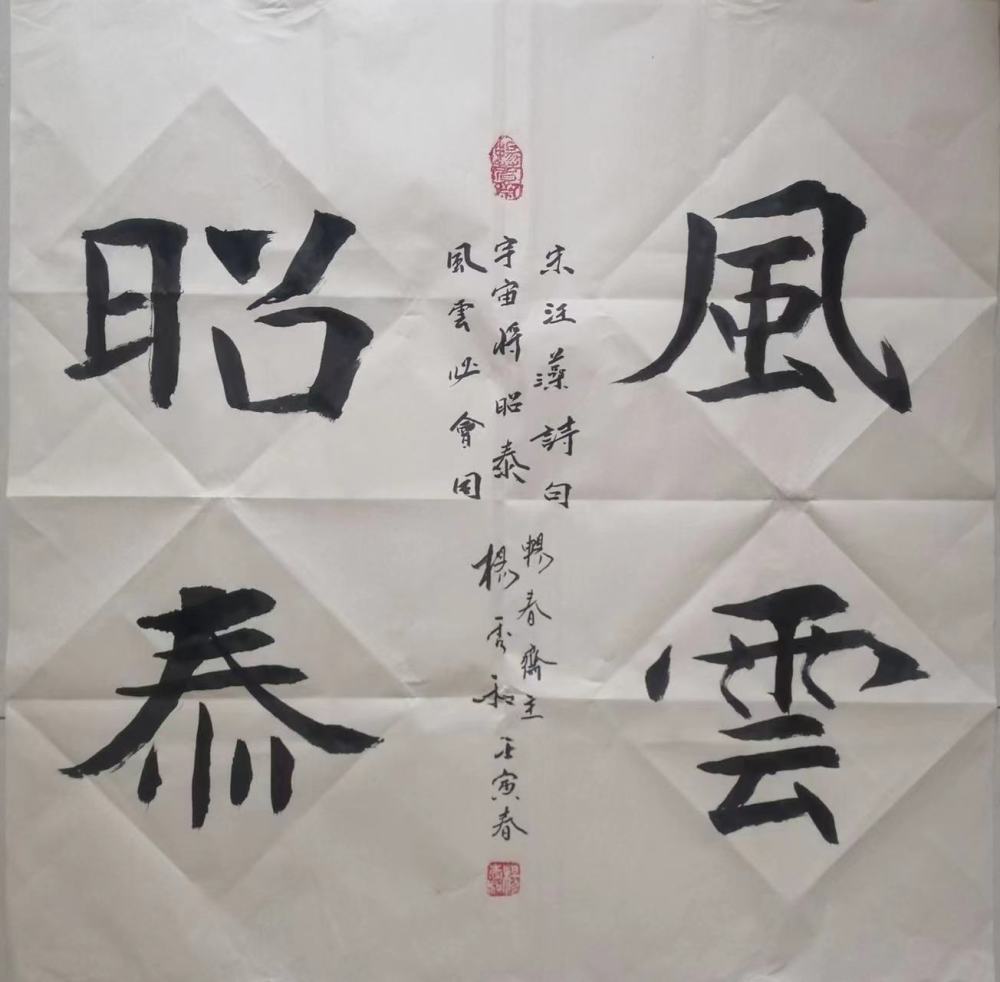 風雲
昭泰
宋汪藻詩句
宇宙将昭泰
風雲必會同
暢春齋主
楊秀和
壬寅春